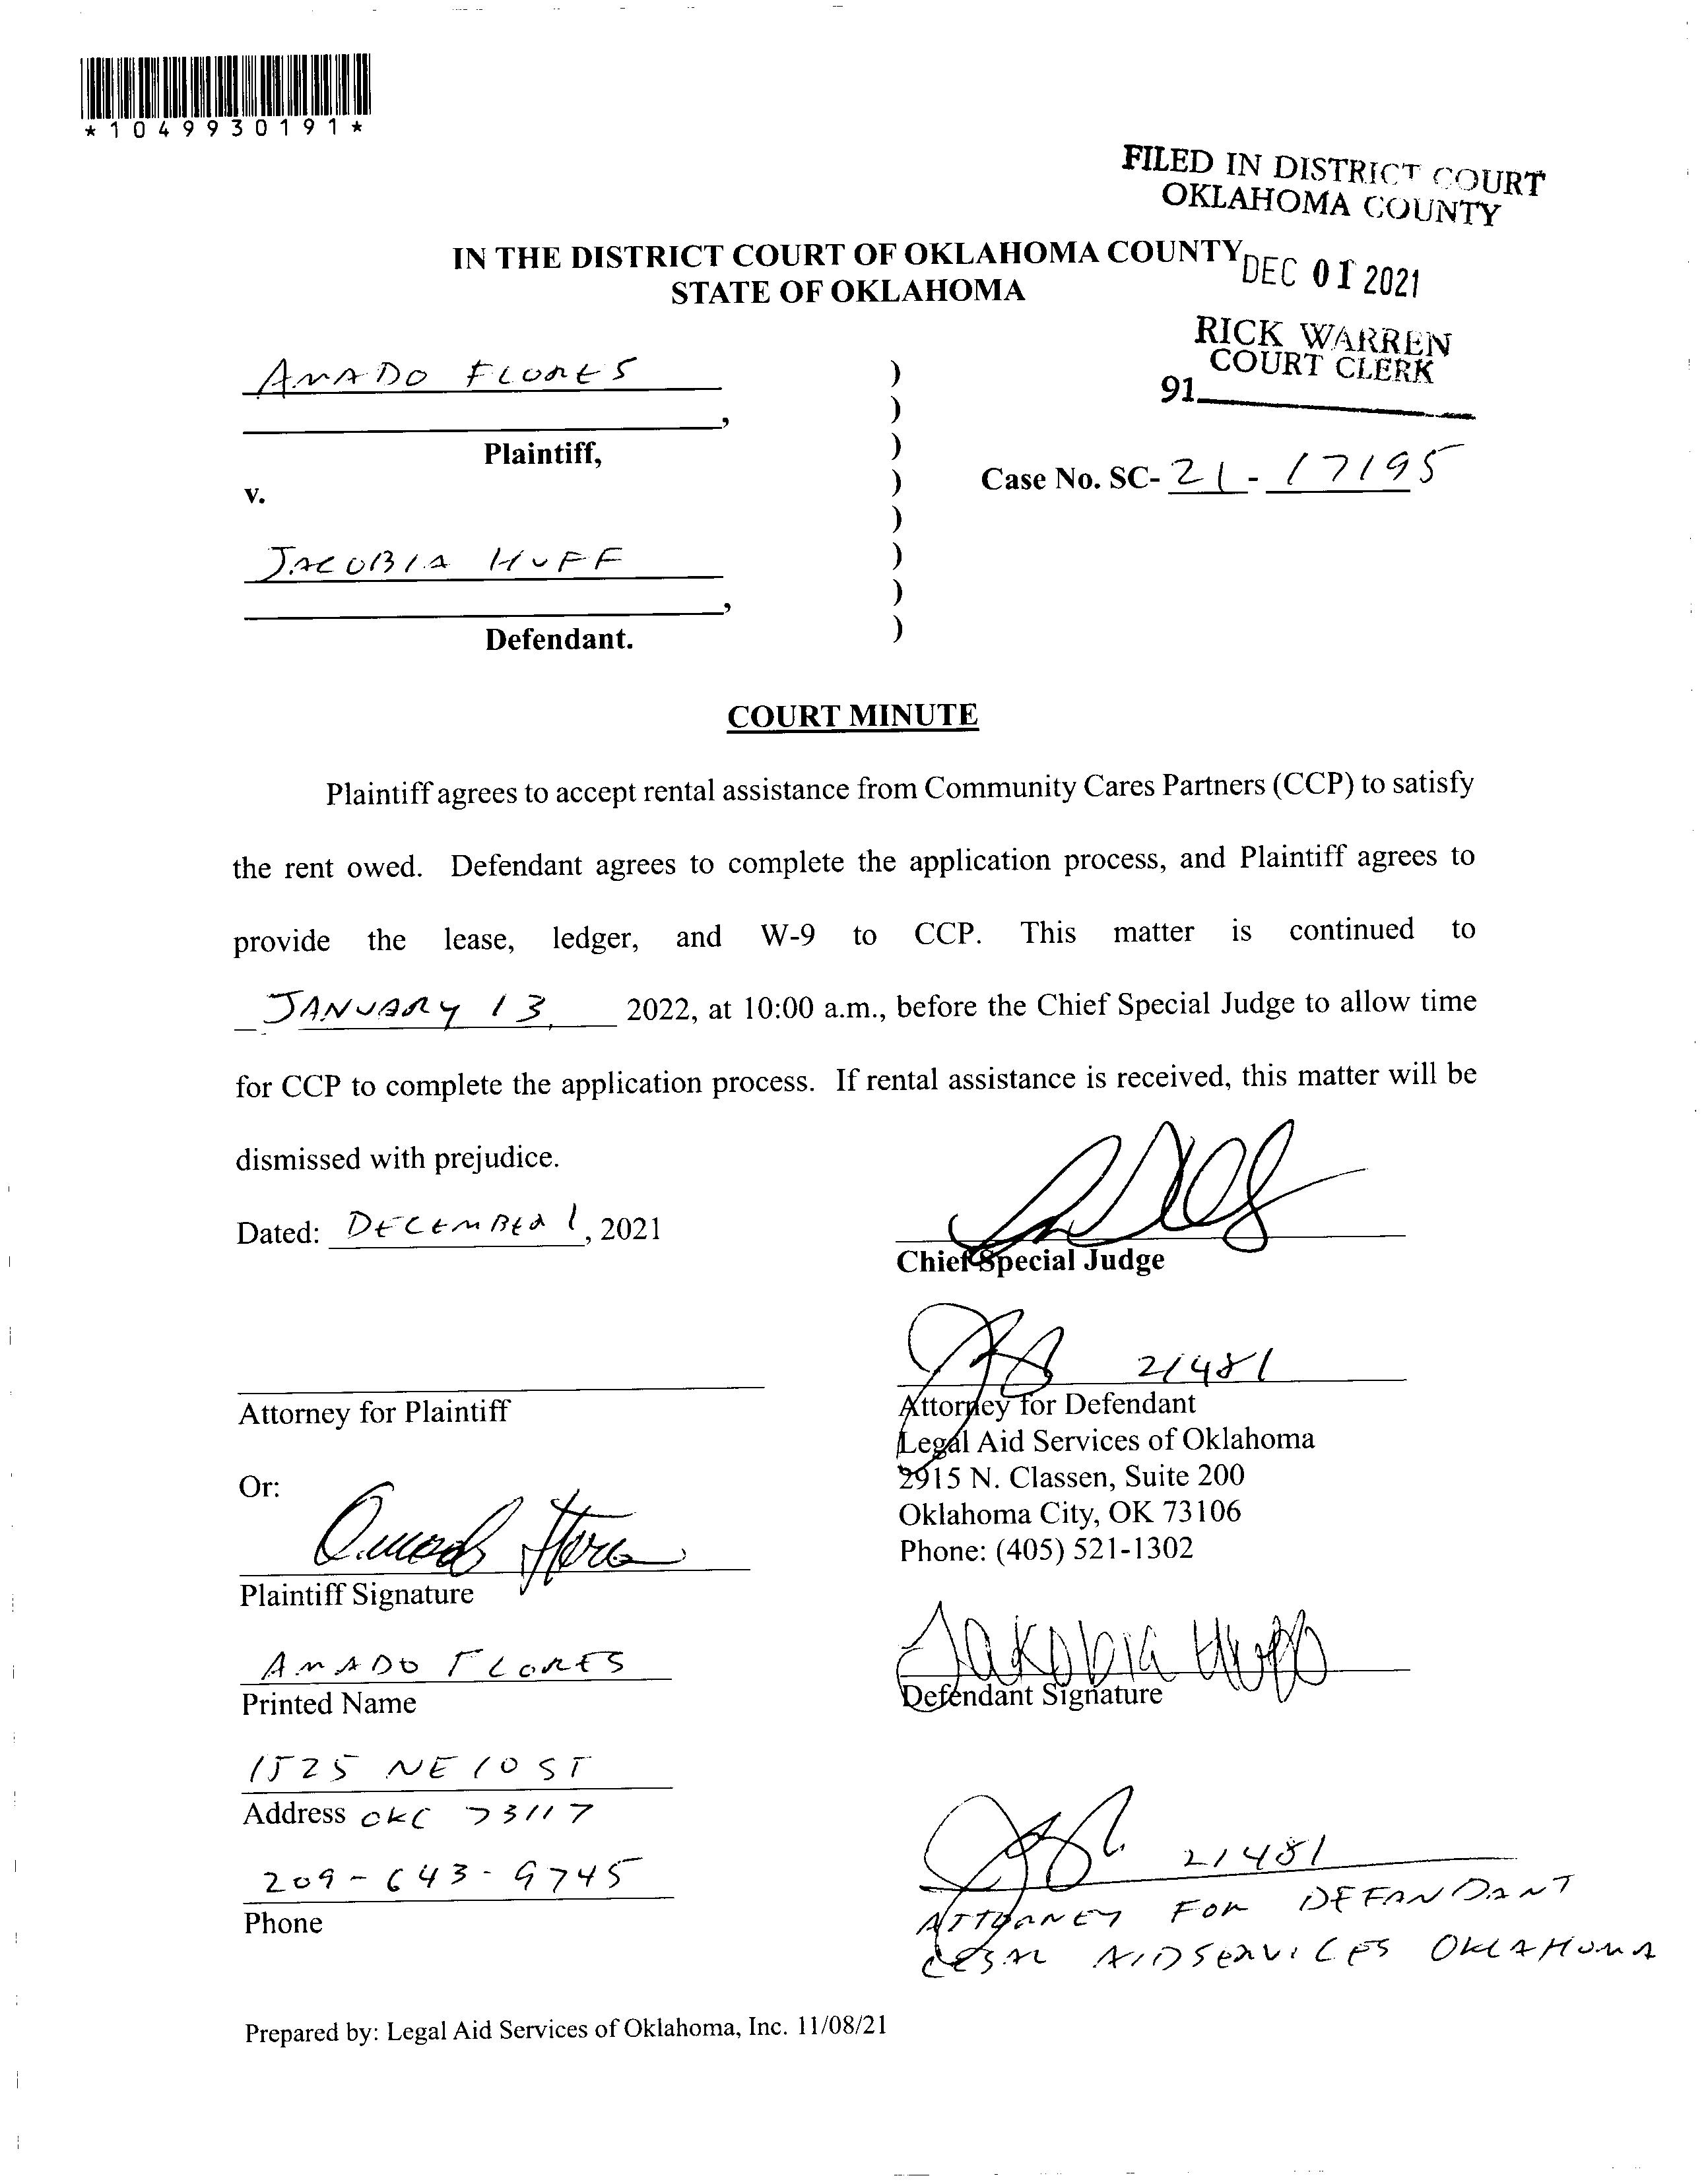 *1049930191*
FILED IN DISTRICT COURT
OKLAHOMA COUNTY
IN THE DISTRICT COURT OF OKLAHOMA COUNTY
DEC 01 2021
STATE OF OKLAHOMA
RICK WARREN
COURT CLERK
91
AMADO FLORES
,
Plaintiff,
Case No. SC- 21 - 17195
v.
JACOBIA HUFF
,
Defendant.
)
)
)
)
)
)
)
)
COURT MINUTE
Plaintiff agrees to accept rental assistance from Community Cares Partners (CCP) to satisfy
the rent owed. Defendant agrees to complete the application process, and Plaintiff agrees to
provide the lease, ledger, and W-9 to CCP. This matter is continued to
JANUARY 13, 2022, at 10:00 a.m., before the Chief Special Judge to allow time
for CCP to complete the application process. If rental assistance is received, this matter will be
dismissed with prejudice.
Dated: DECEMBER 1, 2021
Chief Special Judge
21481
Attorney for Plaintiff
Attorney for Defendant
Legal Aid Services of Oklahoma
2915 N. Classen, Suite 200
Oklahoma City, OK 73106
Phone: (405) 521-1302
Or:
Amado Flores
Plaintiff Signature
Jakobia Huff
Defendant Signature
AMADO FLORES
Printed Name
1525 NE 10 ST
Address OKC 73117
209-643-9745
Phone
21481
ATTORNEY FOR DEFANDANT
LEGAL AID SERVICES OKLAHOMA
Prepared by: Legal Aid Services of Oklahoma, Inc. 11/08/21